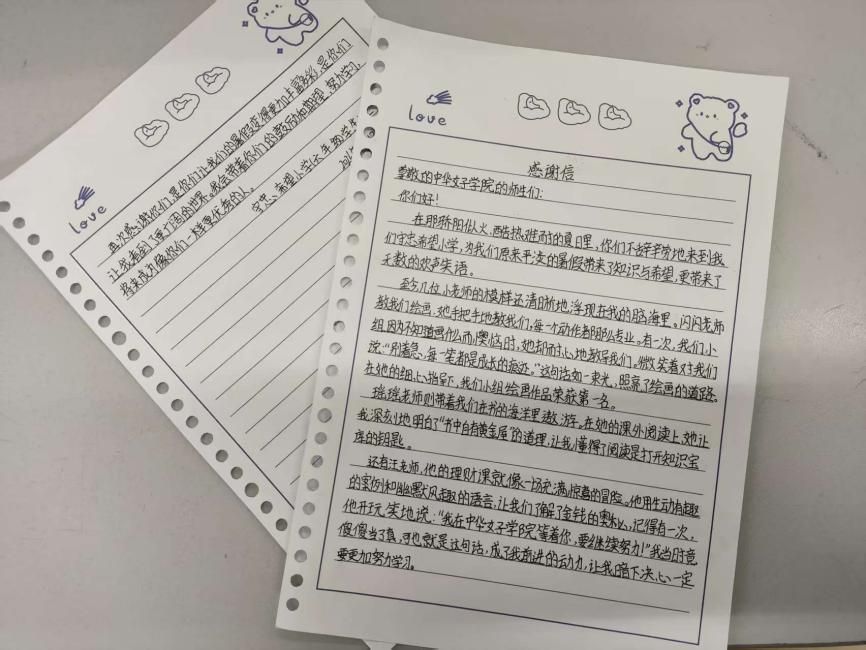 love
感谢信
尊敬的中华女子学院的师生们:
你们好!
在那骄阳似火、酷热难耐的夏日里,你们不辞辛劳地来到我
们守忠希望小学,为我们原来平淡的暑假带来了知识与希望,更带来了
无数的欢声笑语。
至今几位小老师的模样还清晰地浮现在我的脑海里。闪闪老师
教我们绘画,她手把手地教我们,每一个动作都那么专业。有一次,我们小
组因为不知道画什么而懊恼时,她却耐心地教导我们,微笑着对我们
说:“别着急,每一笔都是成长的痕迹。”这句话如一束光,照亮了绘画的道路。
在她的细心指导下,我们小组绘画作品荣获第一名。
瑶瑶老师则带着我们在书的海洋里遨游,在她的课外阅读上,她让
我深刻地明白了“书中自有黄金屋”的道理,让我懂得了阅读是打开知识宝
库的钥匙。
还有汪老师,他的理财课就像一场充满惊喜的冒险。他用生动有趣
的案例和幽默风趣的语言,让我们了解了金钱的奥秘,记得有一次,
他开玩笑地说:“我在中华女子学院等着你,要继续努力!”我当时竟
傻傻当了真,可也就是这句话,成了我前进的动力,让我暗下决心一定
要更加努力学习。
love
再次感谢你们,是你们让我们的暑假变得更加丰富多彩,是你们
让我看到了更广阔的世界。我会带着你们的鼓励和期望,努力学习,
将来成为像你们一样更优秀的人。
守忠希望小学六年级学生